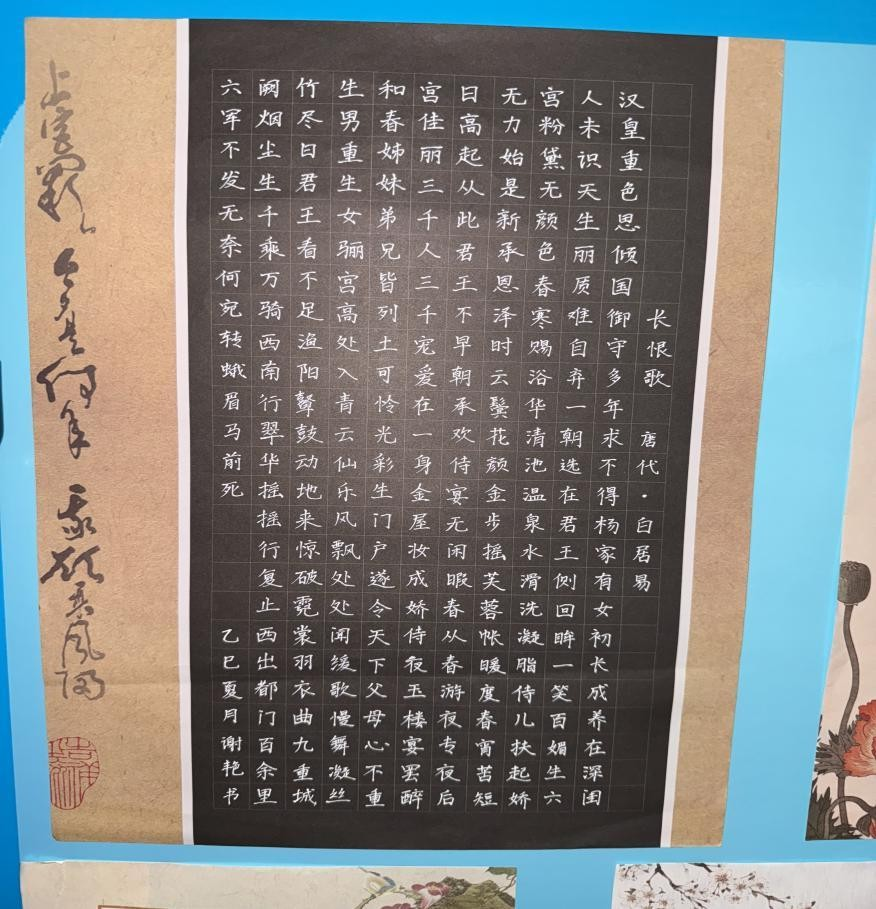 长恨歌 唐代·白居易
汉皇重色思倾国御守多年求不得杨家有女初长成养在深闺
人未识天生丽质难自弃一朝选在君王侧回眸一笑百媚生六
宫粉黛无颜色春寒赐浴华清池温泉水滑洗凝脂侍儿扶起娇
无力始是新承恩泽时云鬓花颜金步摇芙蓉帐暖度春宵苦短
日高起从此君王不早朝承欢侍宴无闲暇春从春游夜专夜后
宫佳丽三千人三千宠爱在一身金屋妆成娇侍夜玉楼宴罢醉
和春姊妹弟兄皆列土可怜光彩生门户遂令天下父母心不重
生男重生女骊宫高处入青云仙乐风飘处处闻缓歌慢舞凝丝
竹尽日君王看不足渔阳鼙鼓动地来惊破霓裳羽衣曲九重城
阙烟尘生千乘万骑西南行翠华摇摇行复止西出都门百余里
六军不发无奈何宛转蛾眉马前死 乙巳夏月谢艳书
上宫阙 今夕是何年 我欲乘风归